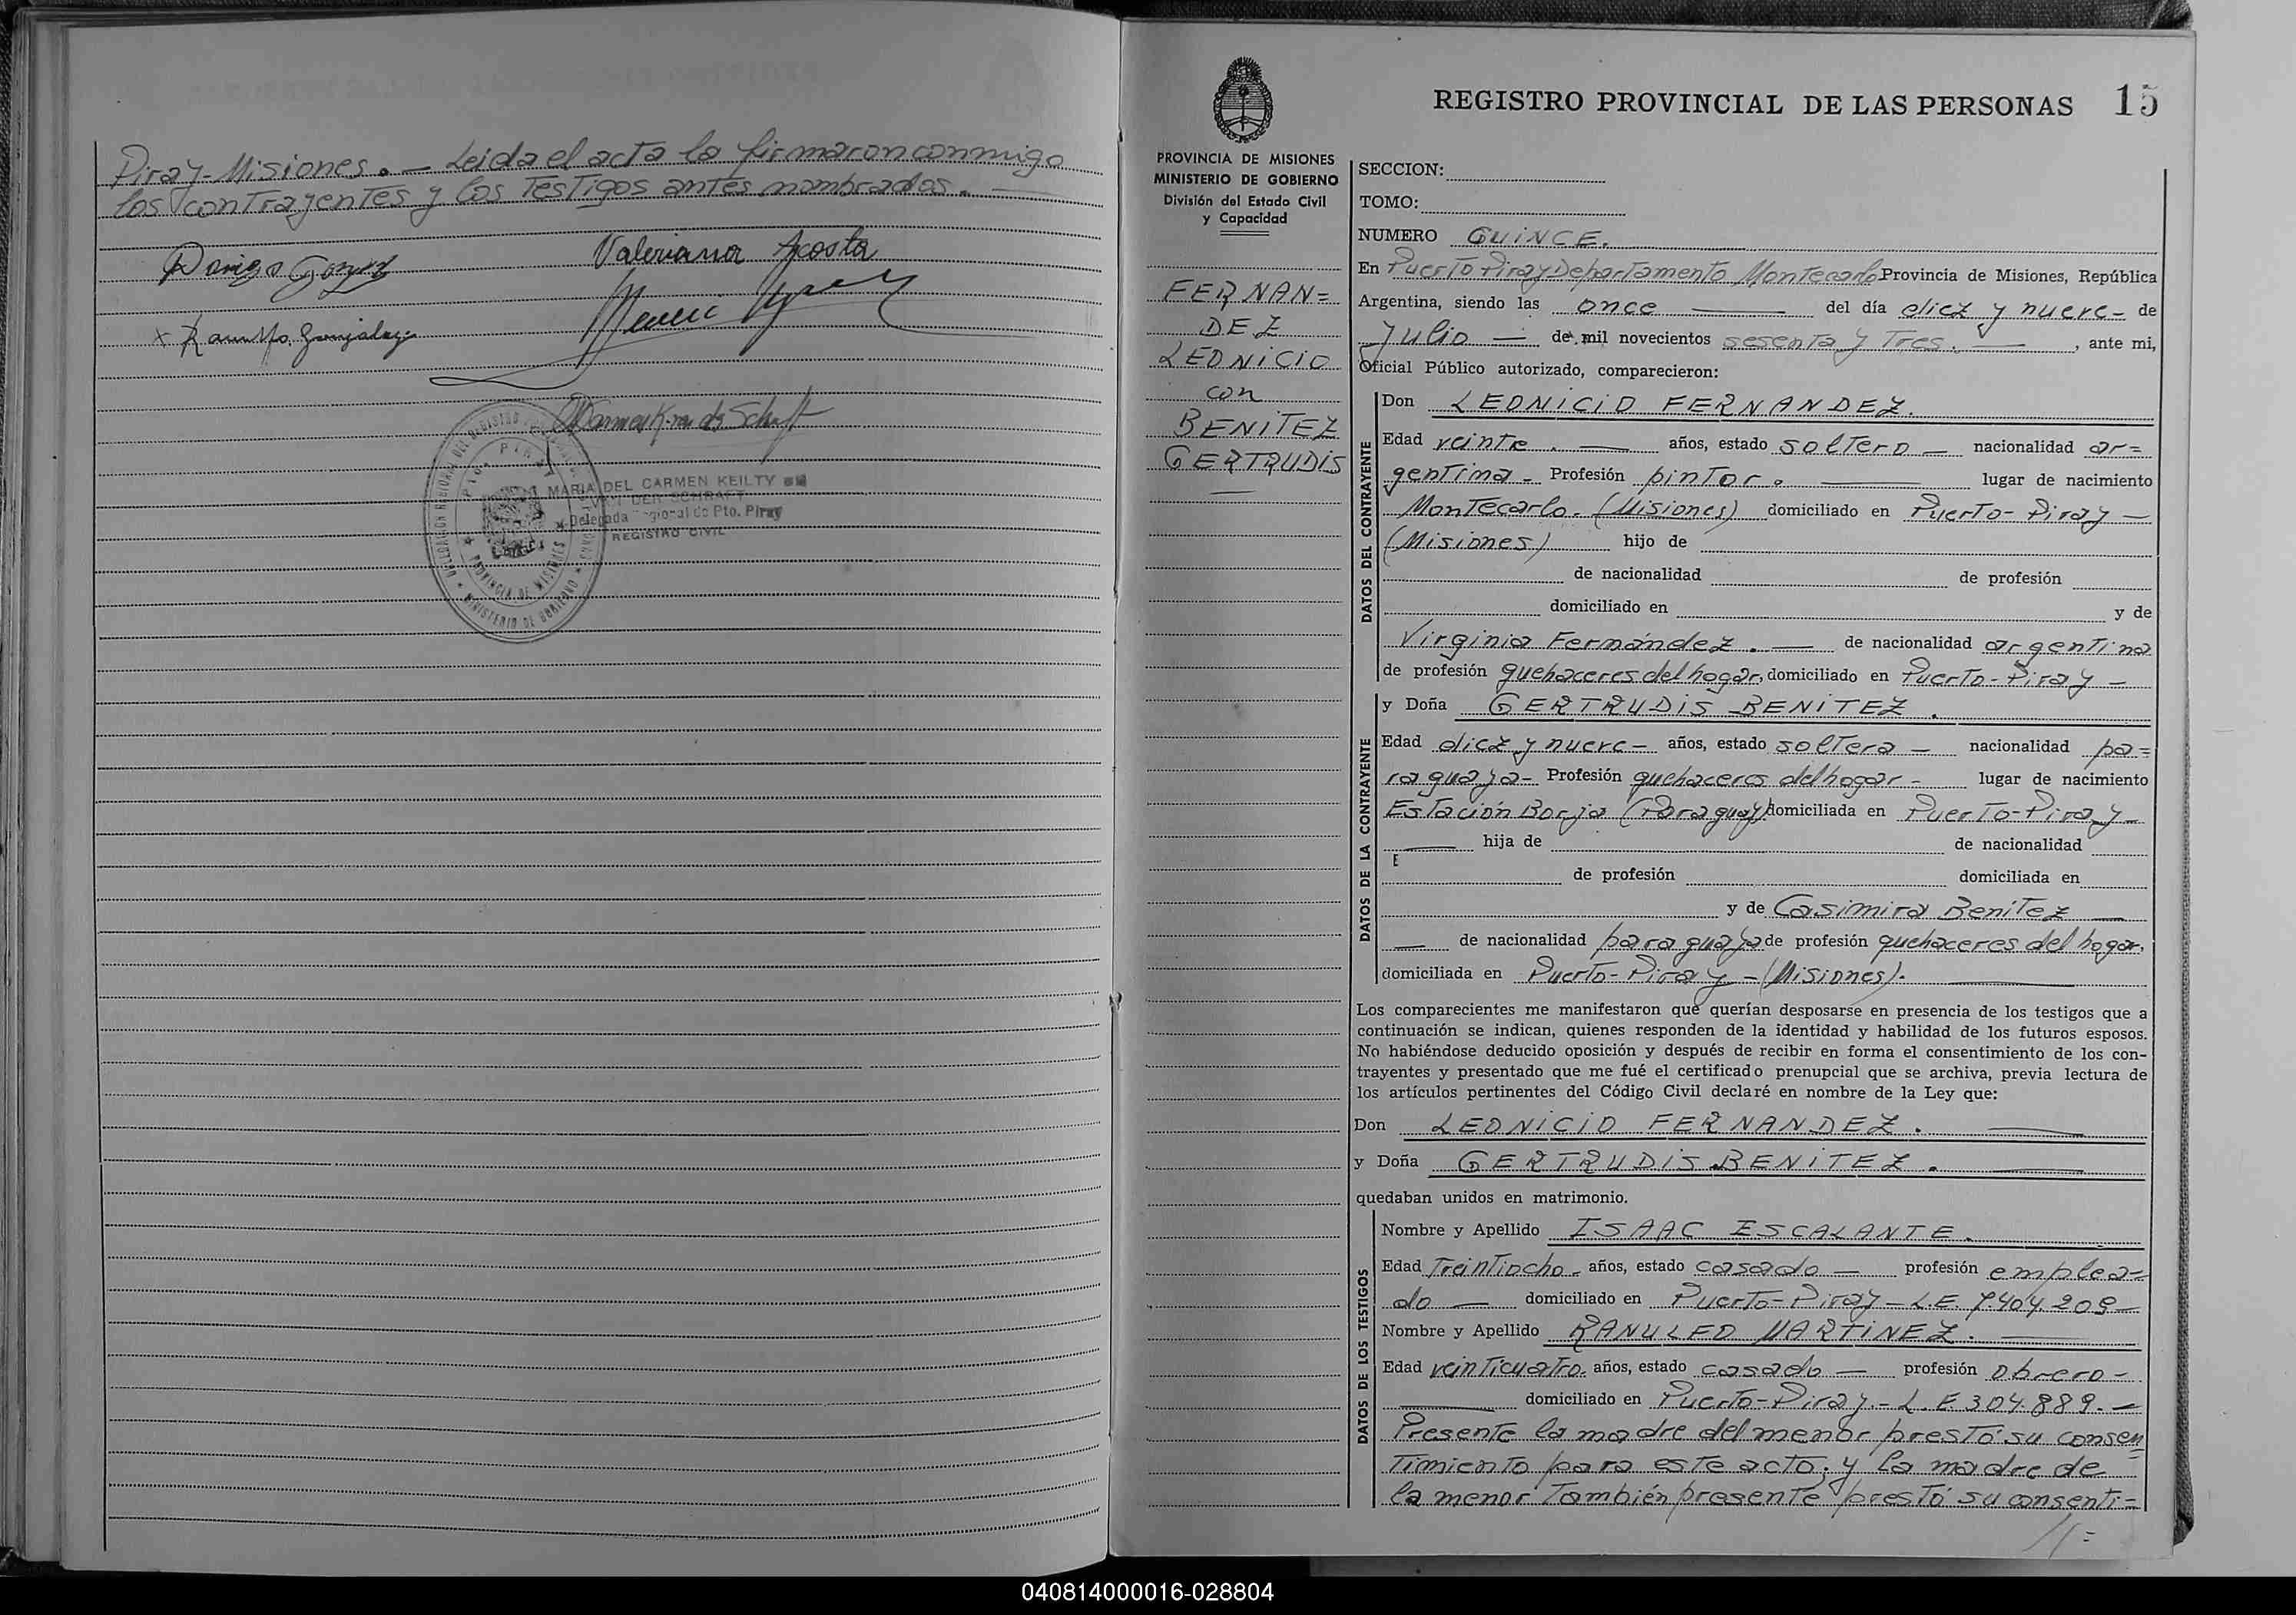 Piray-Misiones. — Leida el acta la firmaron conmigo
los contrayentes y los testigos antes nombrados. —
Valeriana Acosta
MARIA DEL CARMEN KEILTY
Delegada Regional de Pto. Piray
REGISTRO CIVIL
PROVINCIA DE MISIONES
MINISTERIO DE GOBIERNO
REGISTRO PROVINCIAL DE LAS PERSONAS 15
PROVINCIA DE MISIONES
MINISTERIO DE GOBIERNO
División del Estado Civil
y Capacidad
FERNAN=
DEZ
LEONICIO
con
BENITEZ
GERTRUDIS
—
SECCION:
TOMO:
NUMERO QUINCE.
En Puerto Piray Departamento Montecarlo Provincia de Misiones, República
Argentina, siendo las once — del día diez y nueve - de
Julio — de mil novecientos sesenta y tres. —, ante mi,
Oficial Público autorizado, comparecieron:
DATOS DEL CONTRAYENTE
Don LEONICIO FERNANDEZ.
Edad veinte. — años, estado soltero — nacionalidad ar=
gentina - Profesión pintor. — lugar de nacimiento
Montecarlo. (Misiones) domiciliado en Puerto-Piray —
(Misiones) hijo de
de nacionalidad de profesión
domiciliado en y de
Virginia Fernández. — de nacionalidad argentina
de profesión quehaceres del hogar, domiciliado en Puerto-Piray —
DATOS DE LA CONTRAYENTE
y Doña GERTRUDIS BENITEZ.
Edad diez y nueve - años, estado soltera — nacionalidad pa=
raguaya - Profesión quehaceres del hogar - lugar de nacimiento
Estación Borja (Paraguay) domiciliada en Puerto-Piray -
— hija de de nacionalidad
de profesión domiciliada en
y de Casimira Benitez —
— de nacionalidad paraguaya de profesión quehaceres del hogar,
domiciliada en Puerto-Piray - (Misiones). —
Los comparecientes me manifestaron que querían desposarse en presencia de los testigos que a
continuación se indican, quienes responden de la identidad y habilidad de los futuros esposos.
No habiéndose deducido oposición y después de recibir en forma el consentimiento de los con-
trayentes y presentado que me fué el certificado prenupcial que se archiva, previa lectura de
los artículos pertinentes del Código Civil declaré en nombre de la Ley que:
Don LEONICIO FERNANDEZ. —
y Doña GERTRUDIS BENITEZ. —
quedaban unidos en matrimonio.
DATOS DE LOS TESTIGOS
Nombre y Apellido ISAAC ESCALANTE.
Edad Treintiocho - años, estado casado — profesión emplea=
do — domiciliado en Puerto-Piray - L.E. 7.404.209 —
Nombre y Apellido RANULFO MARTINEZ. —
Edad veinticuatro. años, estado casado — profesión obrero -
— domiciliado en Puerto-Piray. - L.E 304.889. —
Presente la madre del menor prestó su consen
timiento para este acto; y la madre de
la menor también presente prestó su consenti=
//=
040814000016-028804